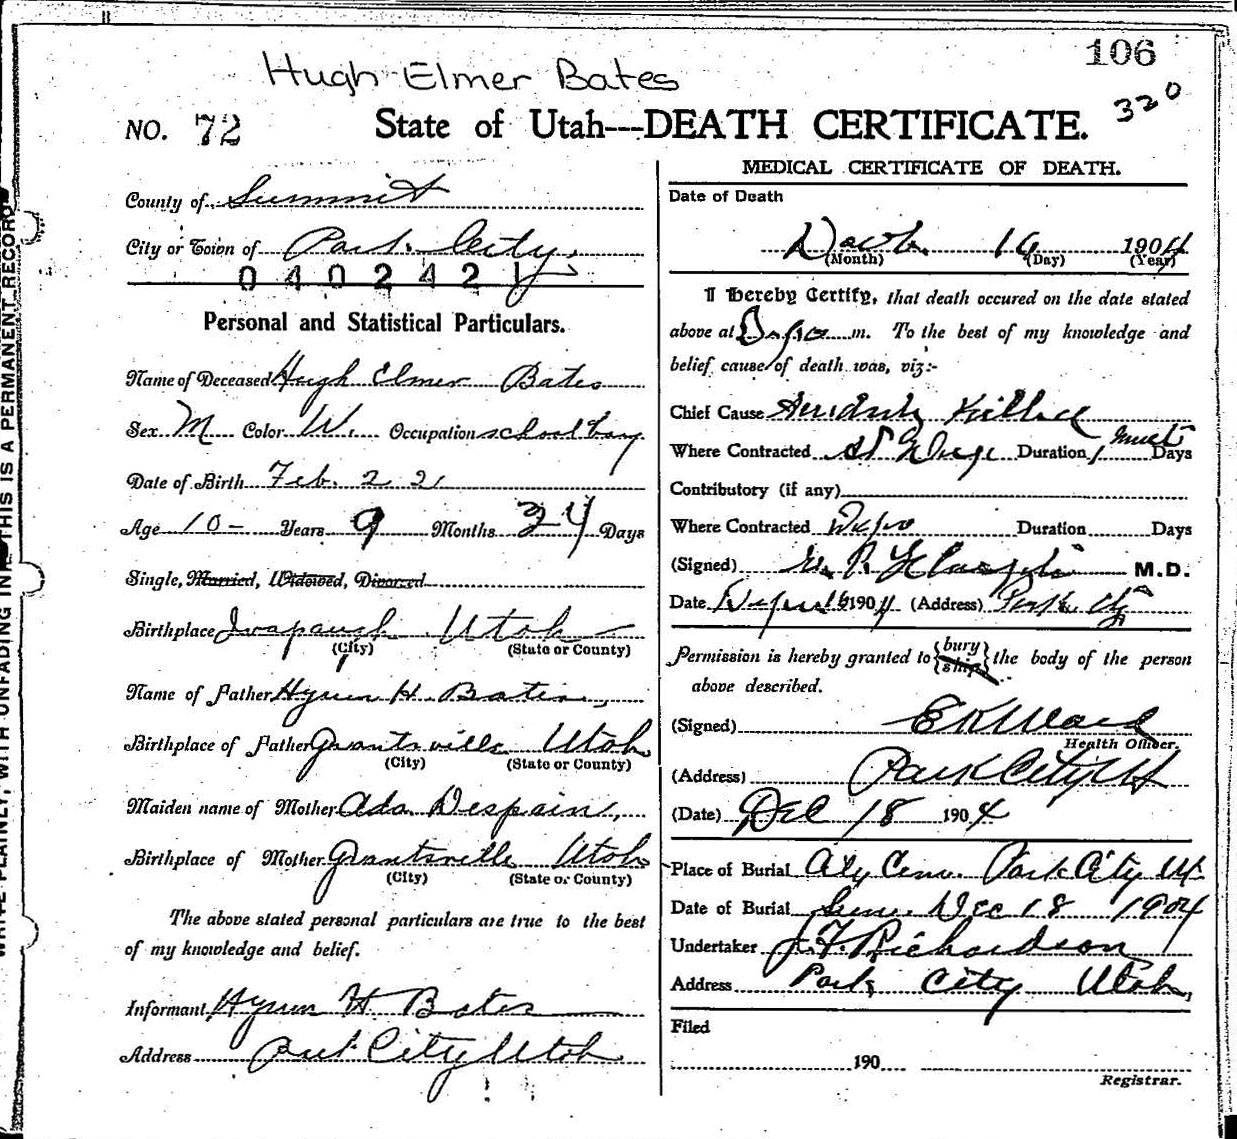 106
Hugh Elmer Bates
320
NO. 72 State of Utah---DEATH CERTIFICATE.
County of Summit
City or Town of Park City,
0402421
Personal and Statistical Particulars.
Name of Deceased Hugh Elmer Bates
Sex M Color W. Occupation school boy
Date of Birth Feb. 22
Age 10 Years 9 Months 24 Days
Single, Married, Widowed, Divorced
Birthplace Utah
(City) (State or County)
Name of Father Hyrum H. Bates,
Birthplace of Father Grantsville Utah
(City) (State or County)
Maiden name of Mother Ada Despain,
Birthplace of Mother Grantsville Utah
(City) (State or County)
The above stated personal particulars are true to the best
of my knowledge and belief.
Informant Hyrum H Bates
Address Park City Utah
MEDICAL CERTIFICATE OF DEATH.
Date of Death
16 1904
(Month) (Day) (Year)
I Hereby Certify, that death occured on the date stated
above at m. To the best of my knowledge and
belief cause of death was, viz:-
Chief Cause Killed
Where Contracted Duration 1 Days
Contributory (if any)
Where Contracted Duration Days
(Signed) M.D.
Date 16 1904 (Address) Park City
Permission is hereby granted to {bury
{ship} the body of the person
above described.
(Signed) E K Ward
Health Officer.
(Address) Park City Ut
(Date) Dec 18 1904
Place of Burial City Cem. Park City Ut.
Date of Burial Sun. Dec 18 1904
Undertaker J. F. Richardson
Address Park City Utah,
Filed
190
Registrar.
WRITE PLAINLY, WITH UNFADING INK THIS IS A PERMANENT RECORD